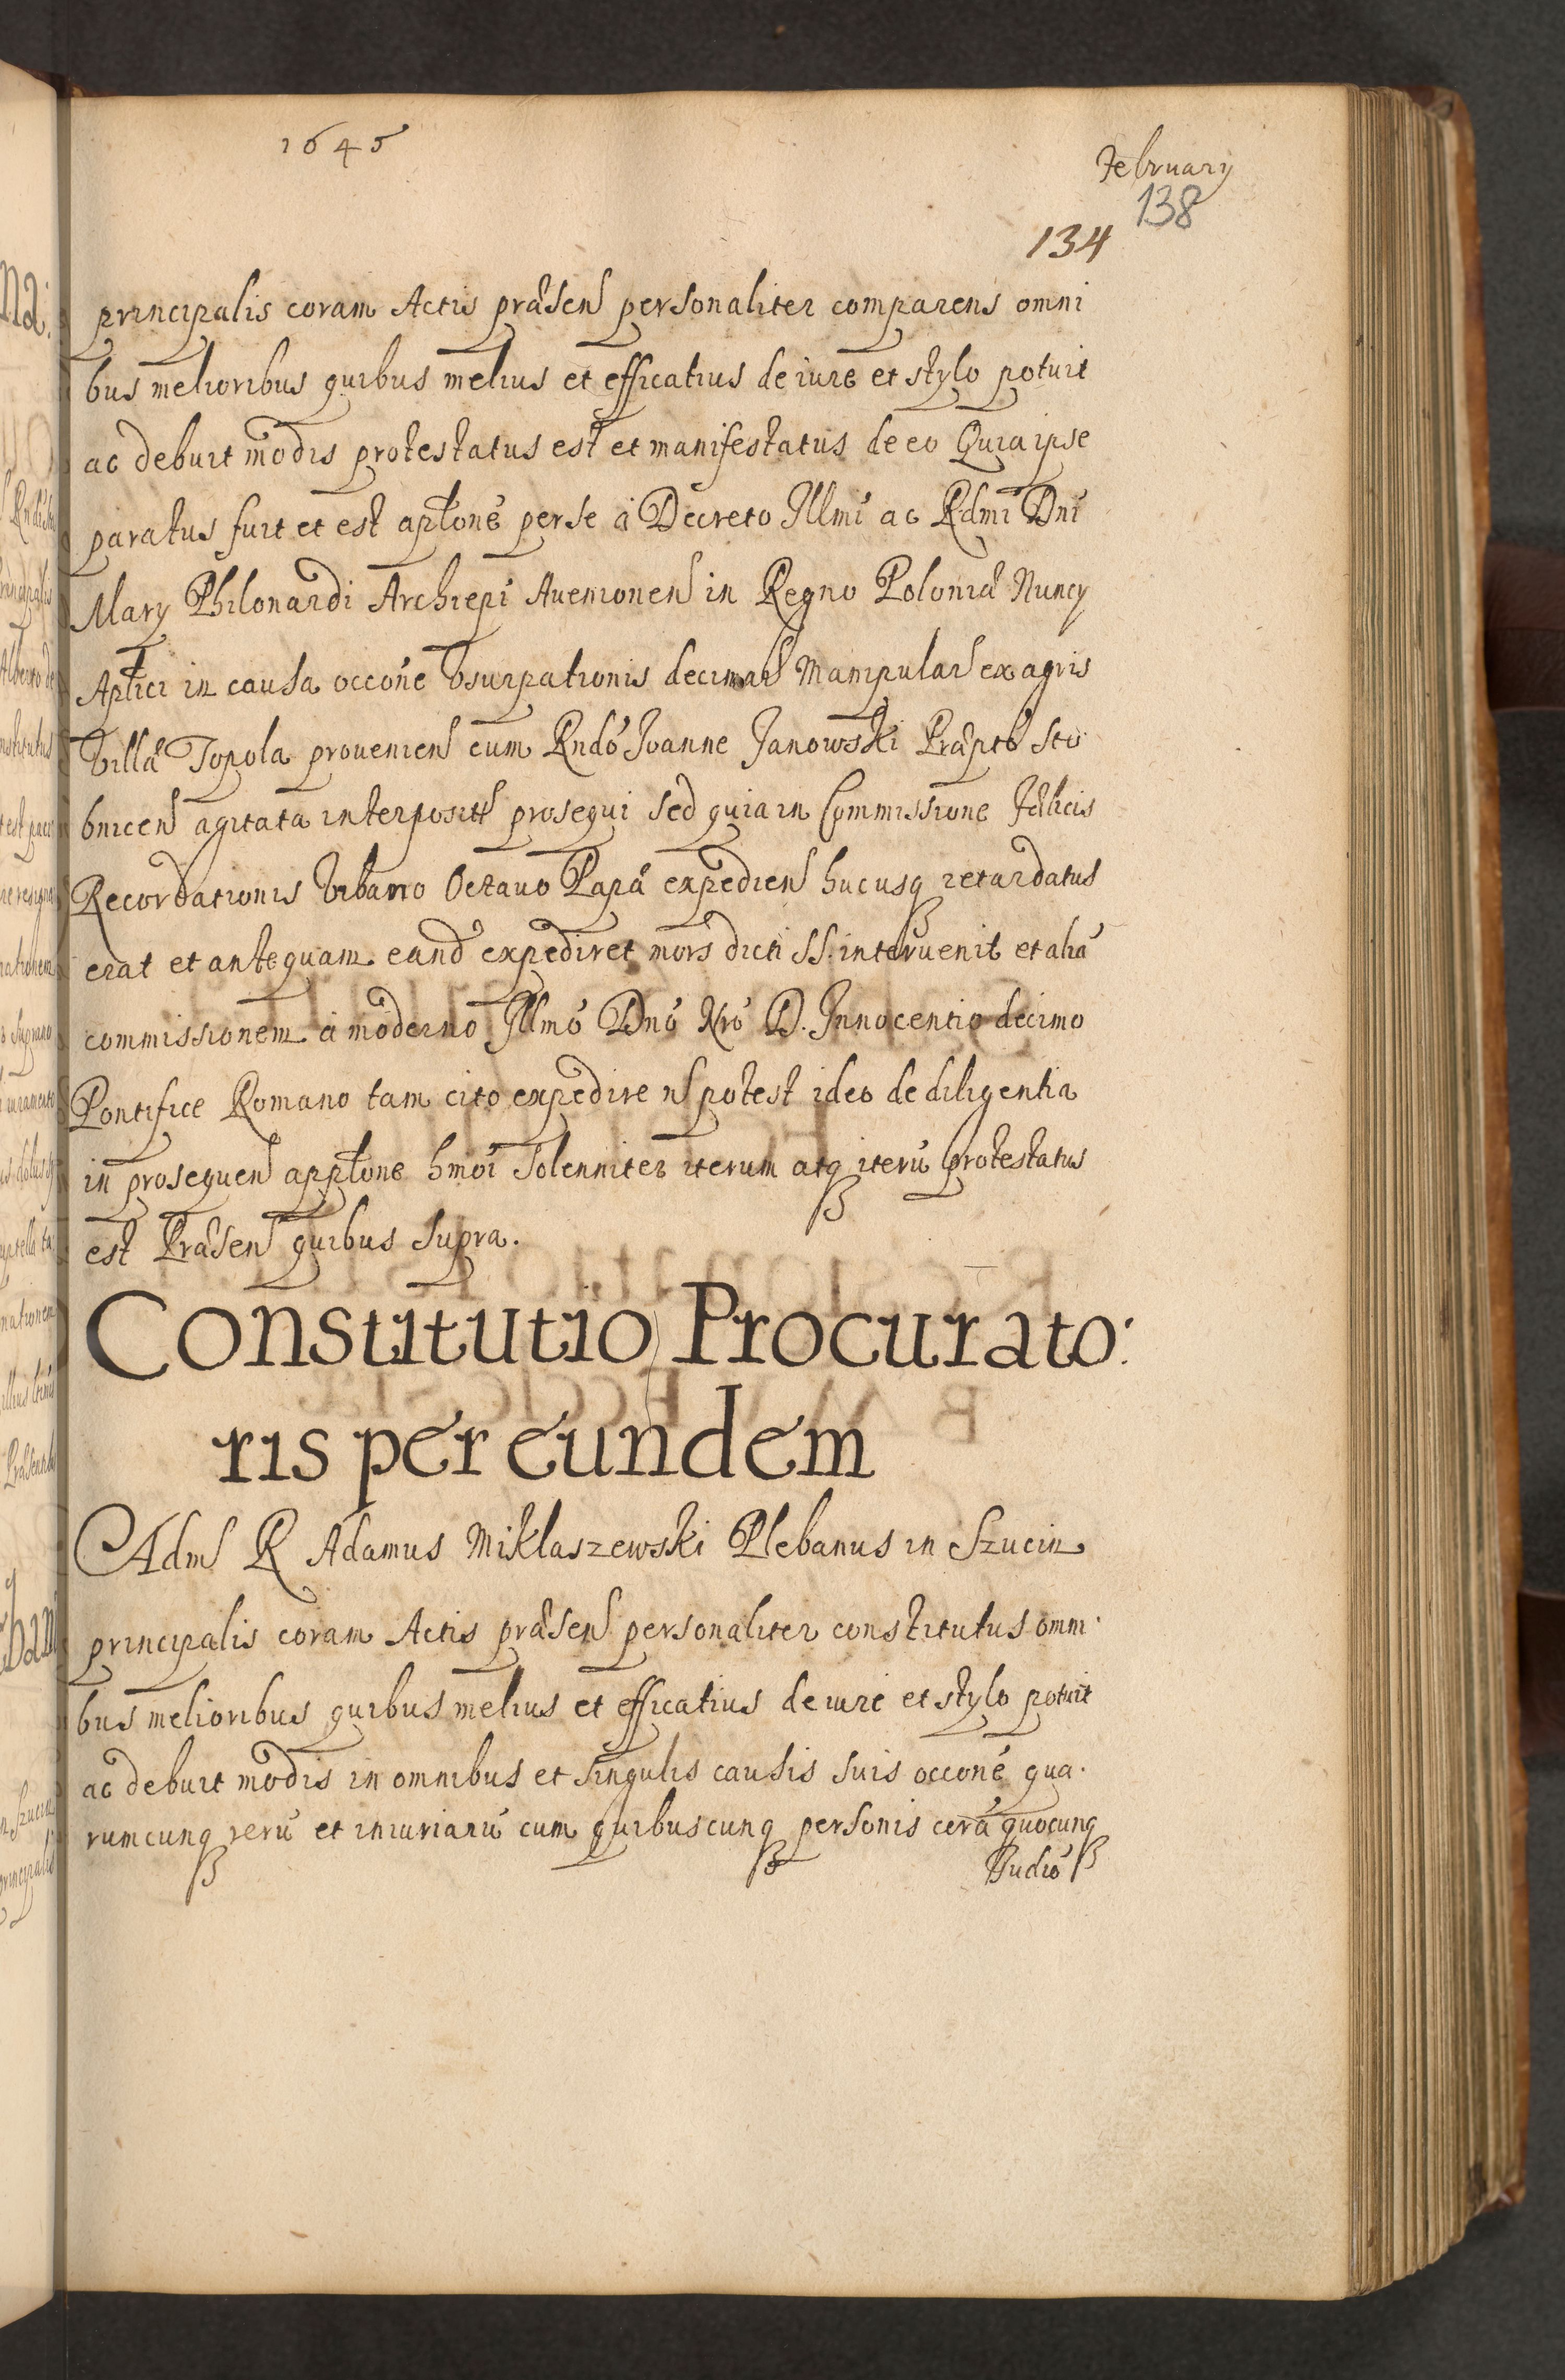 1645
February
138
134
principalis coram Actis præsen personaliter comparens omni
bus melioribus quibus melius et efficatius de iure et stylo potuit
ac debuit modis protestatus est et manifestatus de eo Quia ipse
paratus fuit et est apłone per se à Decreto Illmi ac Rdmi Dni
Mary Philonardi Archiepi Auenionen in Regno Poloniæ Nuncy
Aplici in causa occone vsurpationis decimar Manipular ex agris
Villæ Topola prouenien cum Rndo Joanne Janowski Præpto Sto
bnicen agitata interposit prosequi sed quia in Commissione Fælicis
Recordationis Vrbano Octauo Papæ expedien hucusq retardatus
erat et antequam eand expediret mors dicti SS. interuenit et aliā
commissionem à moderno Illmo Dno Nro D. Innocentio decimo
Pontifice Romano tam cito expedire n potest ideo de diligentia
in prosequen appłone hmoi Solenniter iterum atq iterū protestatus
est Præsen quibus supra.
Constitutio Procurato:
ris per eundem
Adm R Adamus Miklaszewski Plebanus in Szucin
principalis coram Actis præsen personaliter constitutus omni
bus melioribus quibus melius et efficatius de iure et stylo potuit
ac debuit modis in omnibus et singulis causis suis occone qua.
rumcunq rerū et iniuriarū cum quibuscunq personis corā quocunq
Iudio